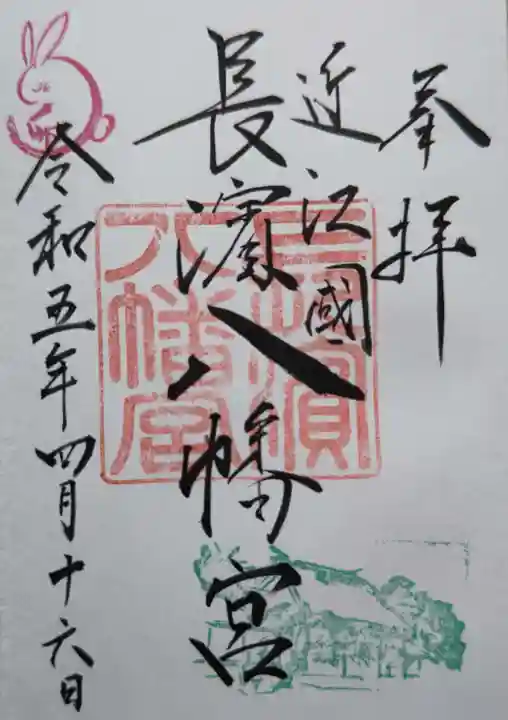 奉拝
近江國
長濱八幡宮
長濱
八幡宮
令和五年四月十六日